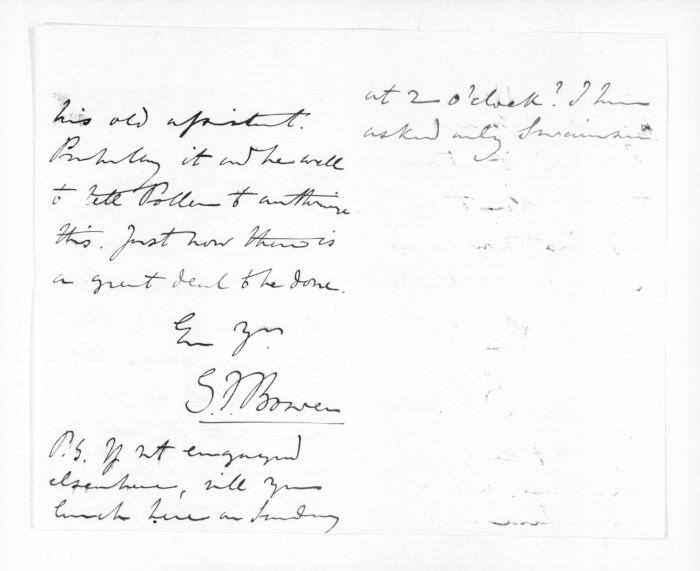 his old assistant.
Probably it wd be well
to tell Pollen to authorize
this. Just now there is
a great deal to be done.
Ev Yrs
G.F.Bowen
P.S. If not engaged
elsewhere, will you
lunch here on Sunday
at 2 o'clock? I have
asked only Swainson